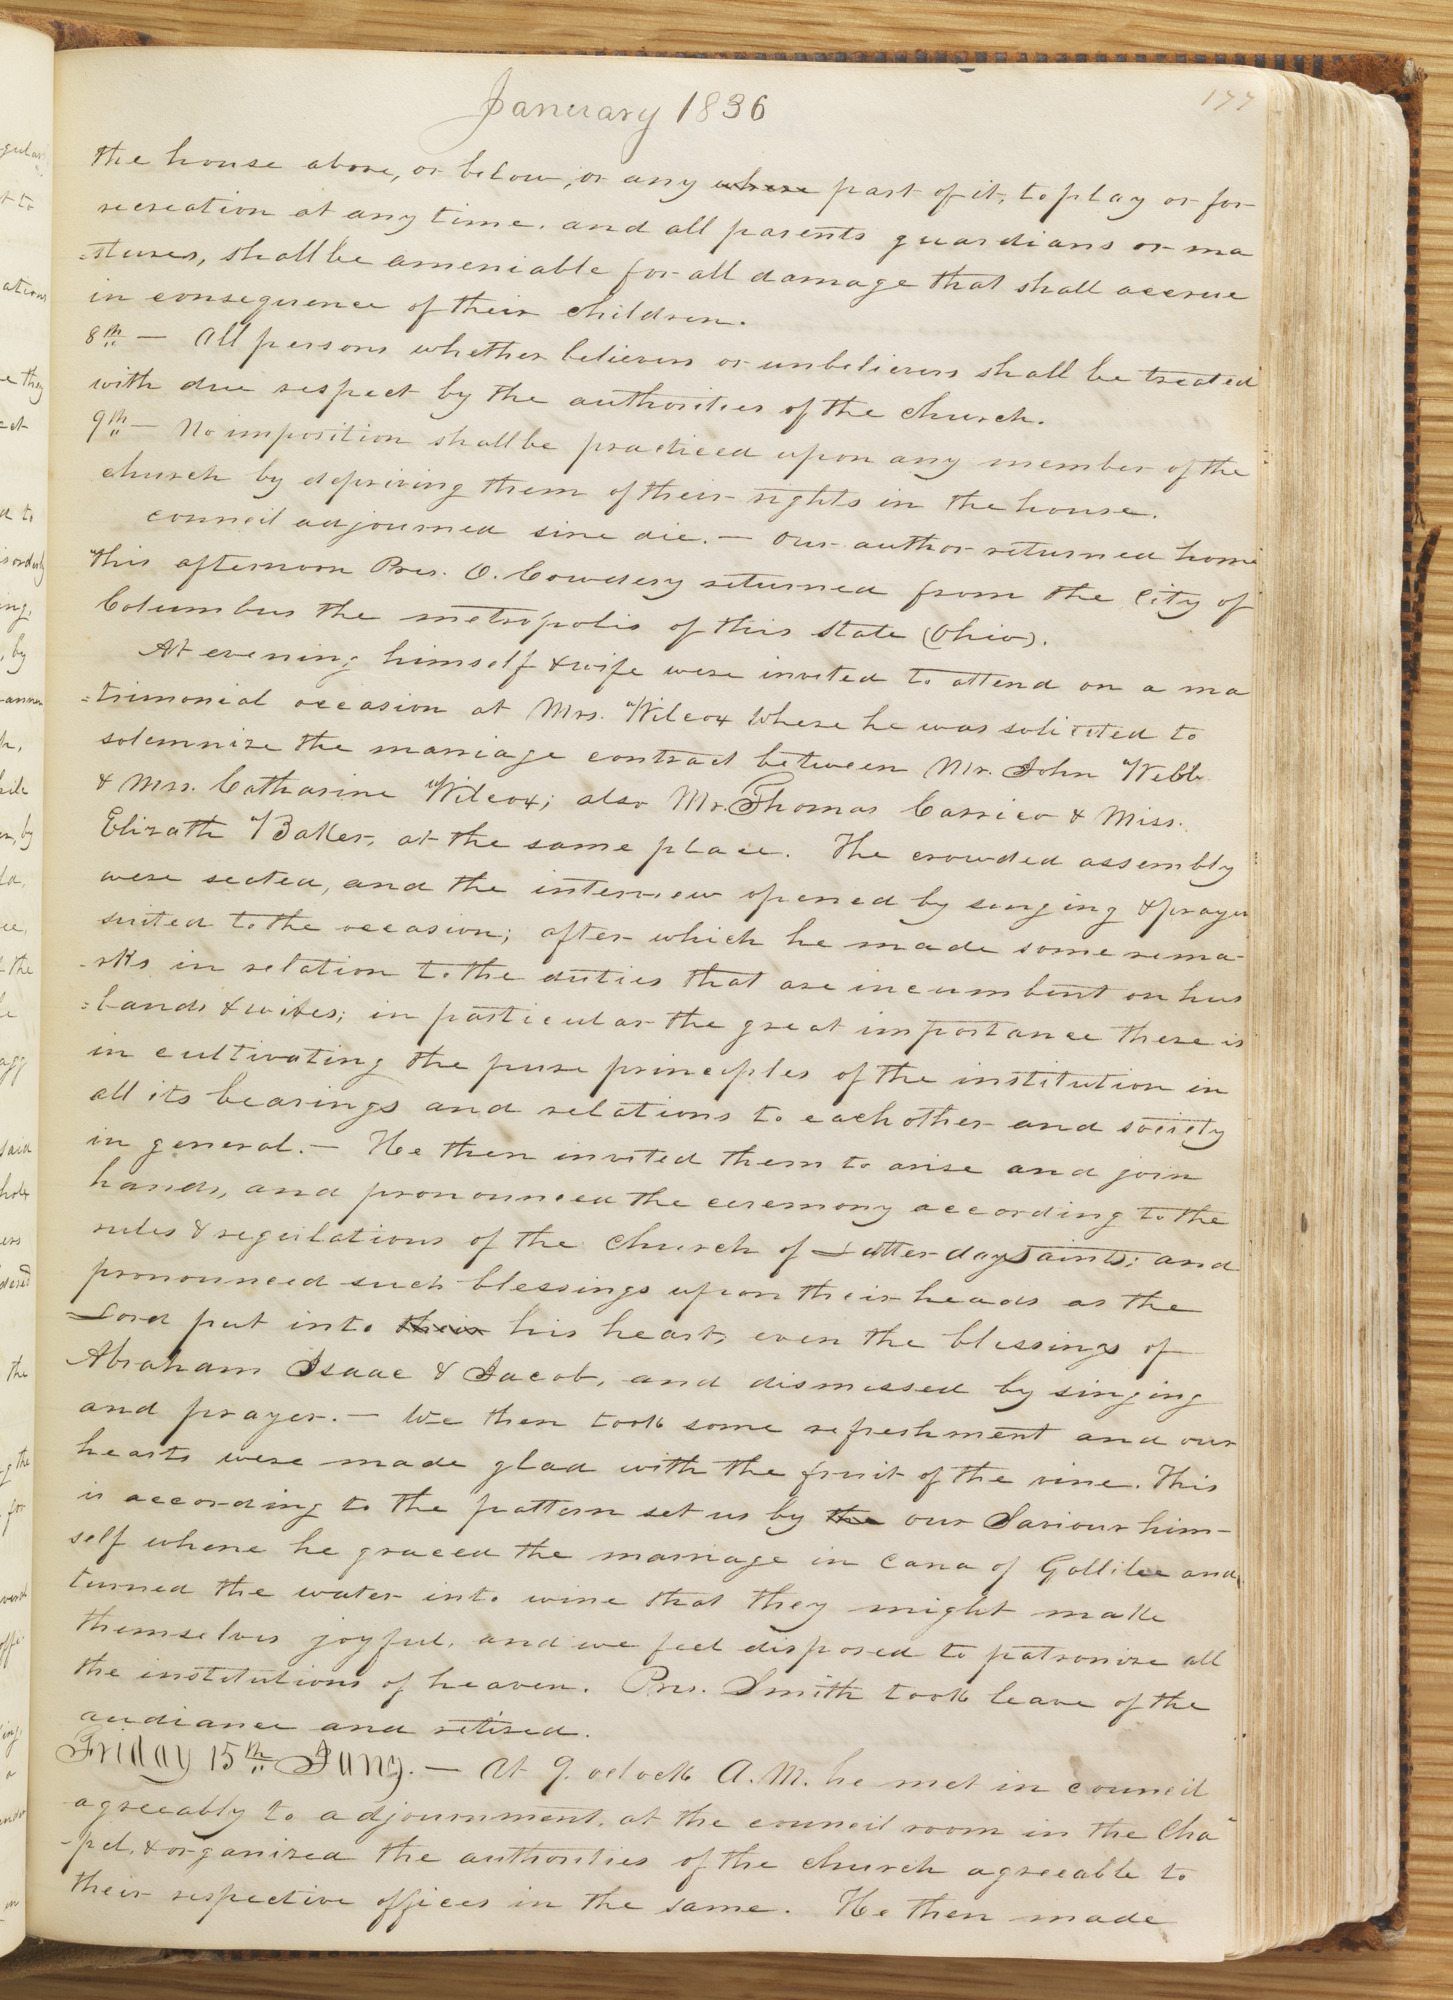 January 1836
177
the house above, or below, or any where part of it, to play or for
recreation at any time. and all parents guardians or ma
=sturs, shall be ameniable for all damage that shall accrue
in consequence of their children.
8th — All persons whether believers or unbelievers shall be treated
with due respect by the authorities of the church.
9th — No imposition shall be practiced upon any member of the
church by depriving them of their rights in the house.
council adjourned sine die. — Our author returned home
this afternoon Pres. O. Cowdery returned from the City of
Columbus the metropolis of this state (Ohio).
At evening himself & wife were invited to attend on a ma
=trimonial occasion at Mrs. Wilcox where he was solicited to
solemnize the marriage contract between Mr. John Webb
& Mrs. Catharine Wilcox; also Mr. Thomas Carrico & Miss.
Elizath Baker, at the same place. The crowded assembly
were seated, and the interview opened by singing & prayer
suited to the occasion; after which he made some rema-
-rks in relation to the duties that are incumbent on hus
=bands & wives; in particular the great importance there is
in cultivating the pure principles of the institution in
all its bearings and relations to each other and society
in general. — He then invited them to arise and join
hands, and pronounced the ceremony according to the
rules & regulations of the church of Latter day Saints; and
pronounced such blessings upon their heads as the
Lord put into their his heart, even the blessings of
Abraham Isaac & Jacob, and dismissed by singing
and prayer. — We then took some refreshment and our
hearts were made glad with the fruit of the vine. This
is according to the pattern set us by the our Saviour him-
self whene he graced the marriage in Cana of Gallilee and
turned the water into wine that they might make
themselves joyful, and we feel disposed to patronize all
the institutions of heaven. Pres. Smith took leave of the
audiance and retired.
Friday 15th Jany. — At 9. oclock A.M. he met in council
agreeably to adjournment, at the council room in the Cha
-pel, & organized the authorities of the church agreeable to
their respective offices in the same. He then made